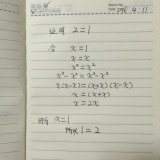 证明 2=1
令 x=1
x=x
x²=x²
x²-x²=x²-x²
x(x-x)=(x+x)(x-x)
x=(x+x)
x=2x
x=1
1=2